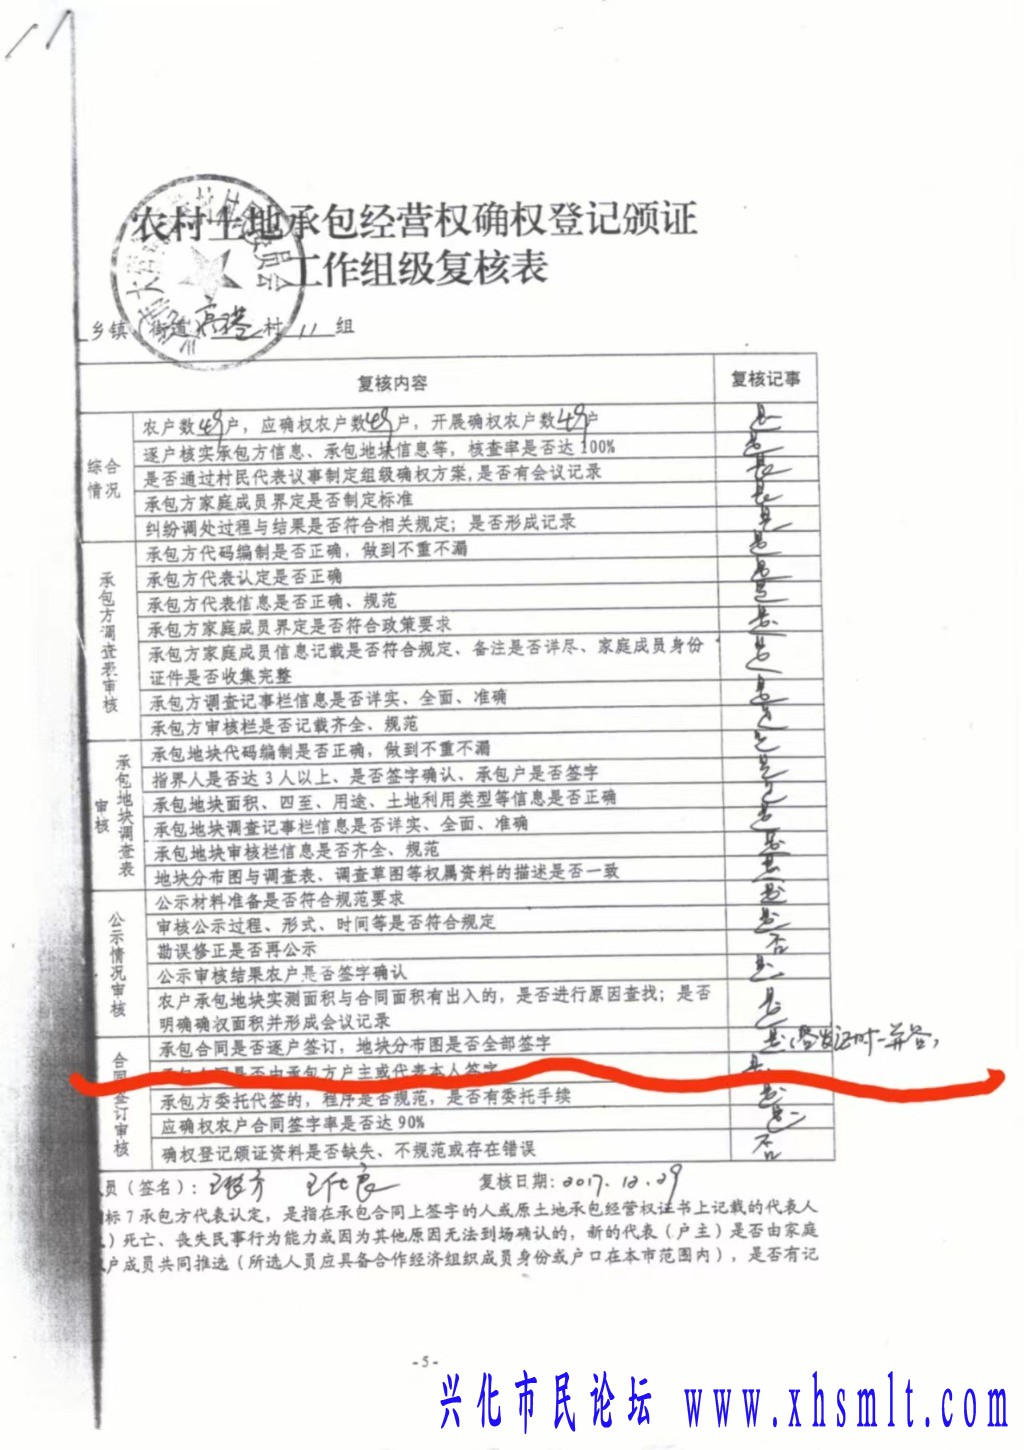 农村土地承包经营权确权登记颁证
工作组级复核表
乡镇（街道） 村 11 组
复核内容 复核记事
综合情况
农户数49户，应确权农户数49户，开展确权农户数49户 是
逐户核实承包方信息、承包地块信息等，核查率是否达100% 是
是否通过村民代表议事制定组级确权方案,是否有会议记录 是
承包方家庭成员界定是否制定标准 是
纠纷调处过程与结果是否符合相关规定；是否形成记录 是
承包方调查表审核
承包方代码编制是否正确，做到不重不漏 是
承包方代表认定是否正确 是
承包方代表信息是否正确、规范 是
承包方家庭成员界定是否符合政策要求 是
承包方家庭成员信息记载是否符合规定、备注是否详尽、家庭成员身份
证件是否收集完整 是
承包方调查记事栏信息是否详实、全面、准确 是
承包方审核栏是否记载齐全、规范 是
承包地块调查表审核
承包地块代码编制是否正确，做到不重不漏 是
指界人是否达3人以上、是否签字确认、承包户是否签字 是
承包地块面积、四至、用途、土地利用类型等信息是否正确 是
承包地块调查记事栏信息是否详实、全面、准确 是
承包地块审核栏信息是否齐全、规范 是
地块分布图与调查表、调查草图等权属资料的描述是否一致 是
公示情况审核
公示材料准备是否符合规范要求 是
审核公示过程、形式、时间等是否符合规定 是
勘误修正是否再公示 否
公示审核结果农户是否签字确认 是
农户承包地块实测面积与合同面积有出入的，是否进行原因查找；是否
明确确权面积并形成会议记录 是
合同签订审核
承包合同是否逐户签订，地块分布图是否全部签字 是（登发证时一并签）
承包合同是否由承包方户主或代表本人签字 是
承包方委托代签的，程序是否规范，是否有委托手续 是
应确权农户合同签字率是否达90% 是
确权登记颁证资料是否缺失、不规范或存在错误 否
员（签名）： 复核日期：2017.12.29
标7承包方代表认定，是指在承包合同上签字的人或原土地承包经营权证书上记载的代表人
）死亡、丧失民事行为能力或因为其他原因无法到场确认的，新的代表（户主）是否由家庭
户成员共同推选（所选人员应具备合作经济组织成员身份或户口在本市范围内），是否有记
-5-
兴化市民论坛 www.xhsmlt.com